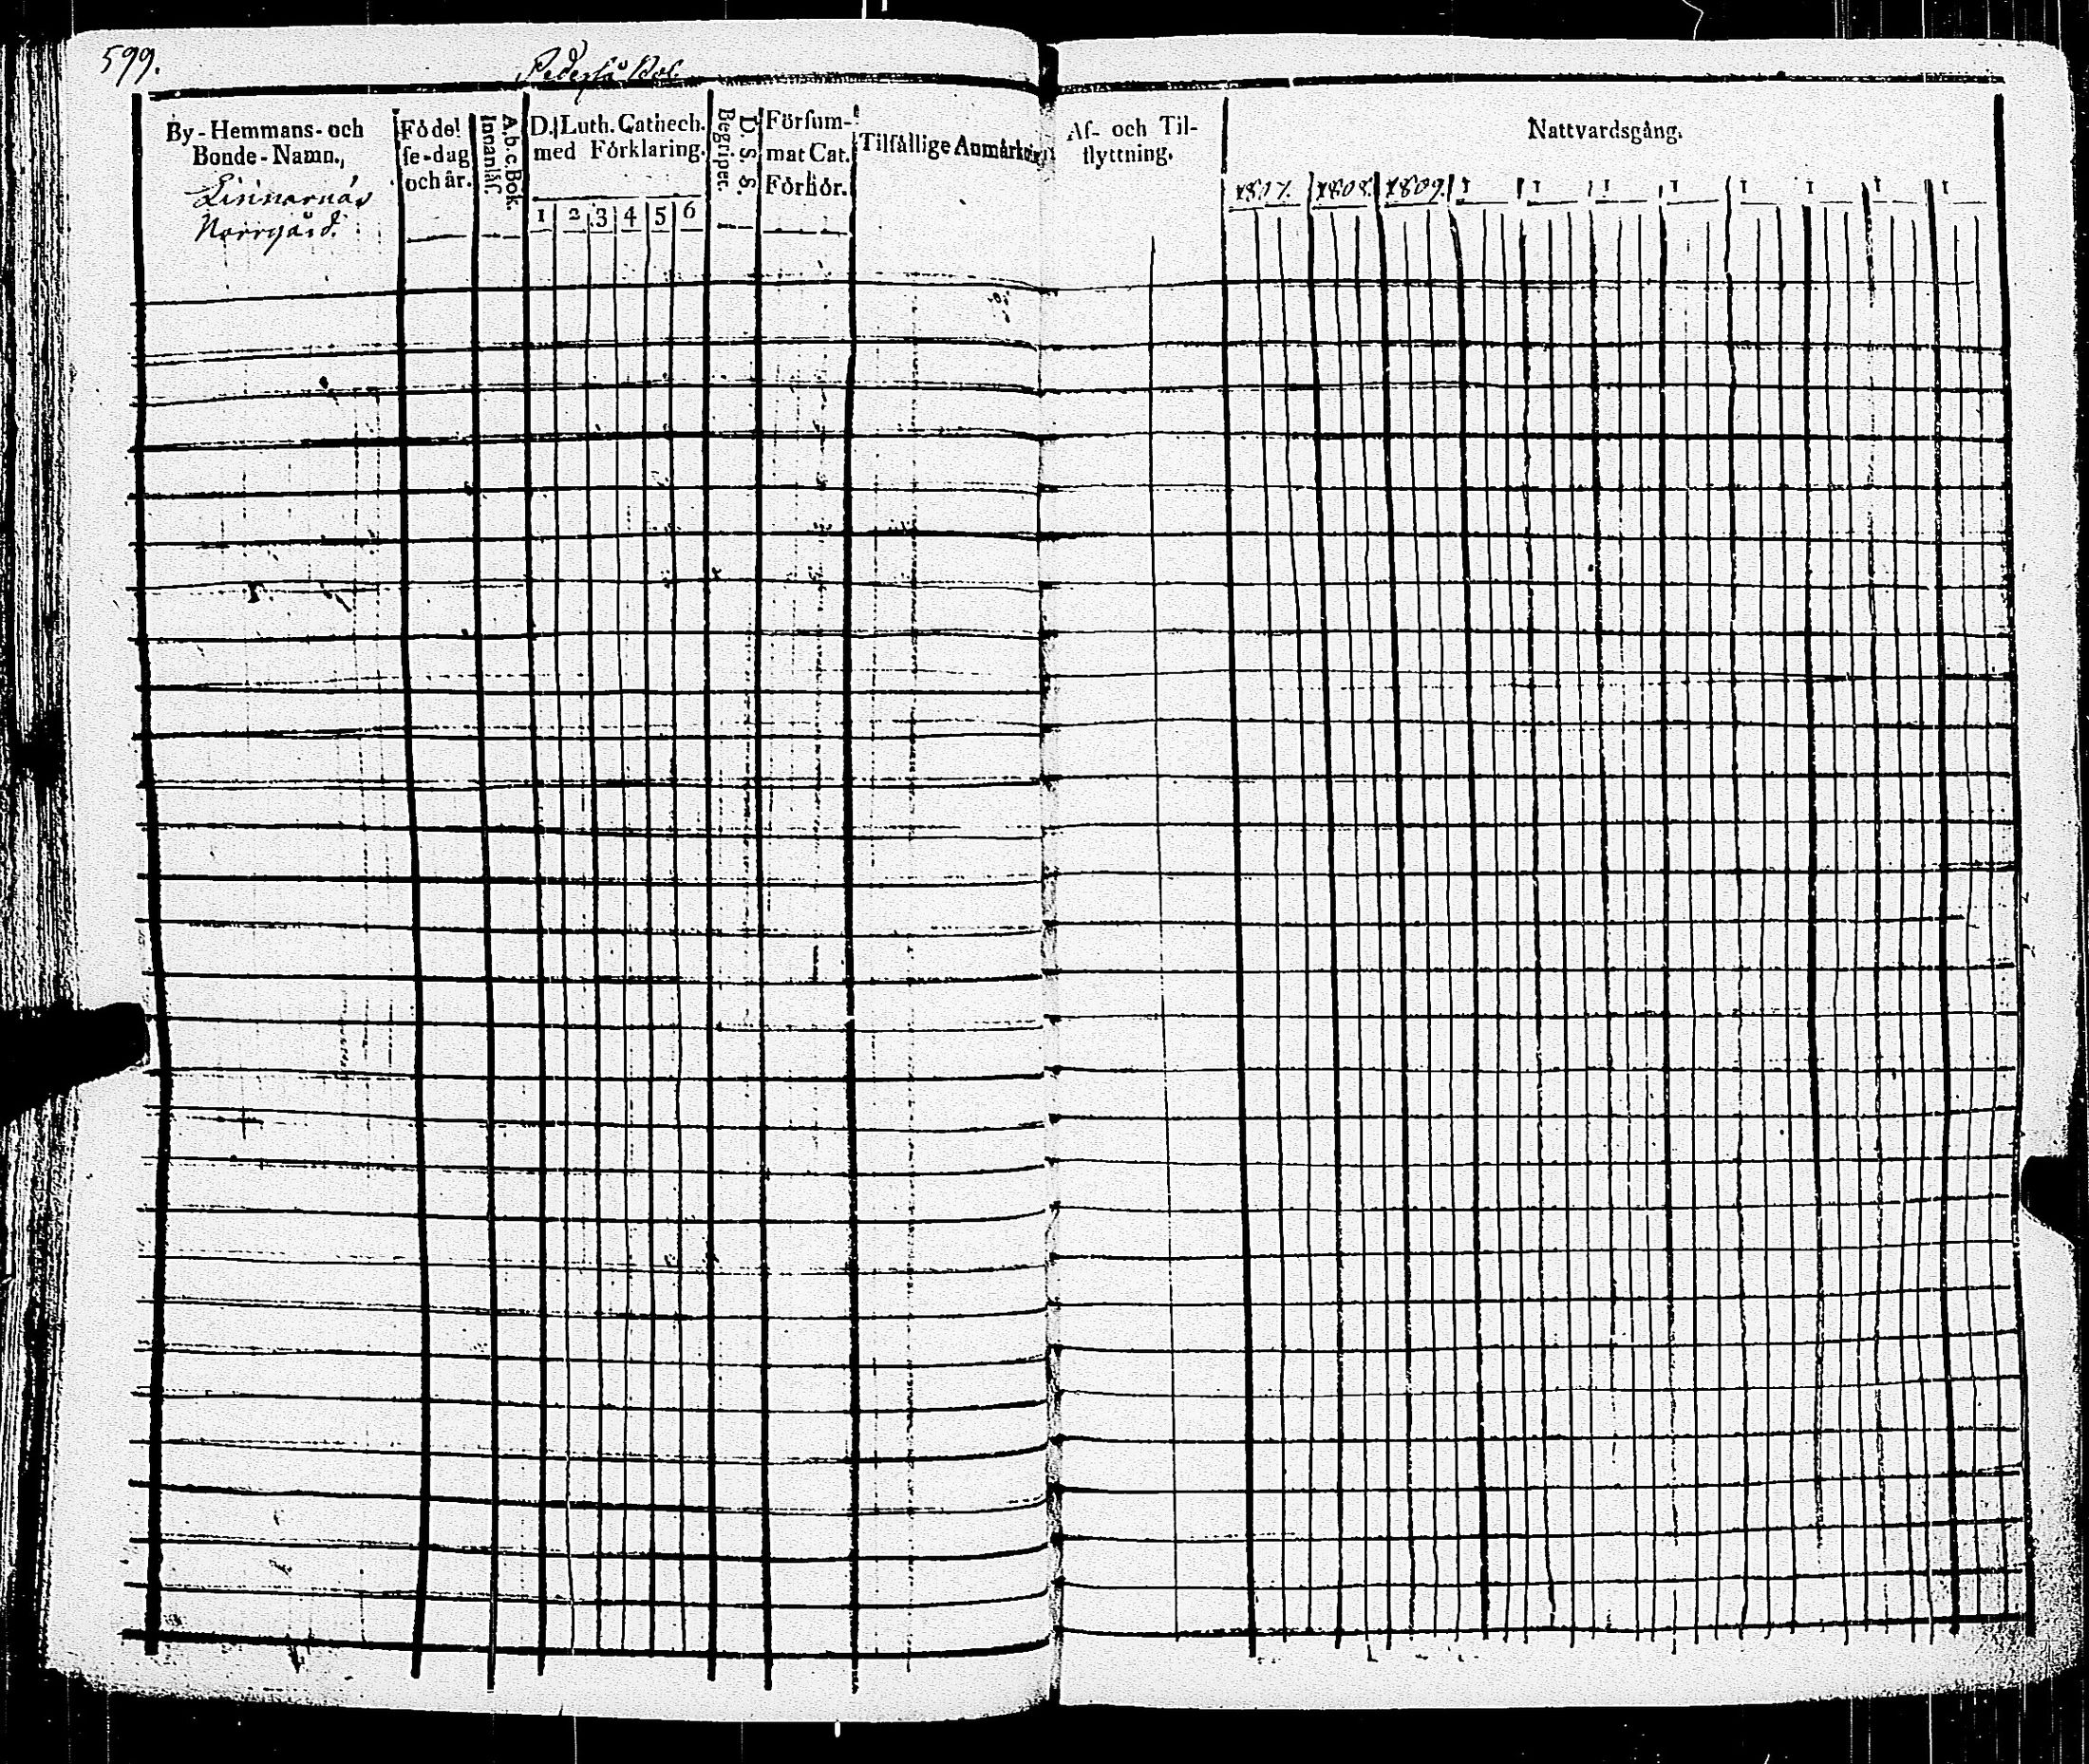 599.
Pedersså Bol.
By-Hemmans-och
Bonde-Namn.
Linnarnäs
Norrgård.
Födel
se-dag
och år.
A.b.c.Bok.
Innanläs.
D. Luth. Cathech.
med Förklaring.
1 2 3 4 5 6
D. S. S.
Begriper.
Försum-
mat Cat.
Förhör.
Tilfällige Anmärkn
Af- och Til-
flyttning.
Nattvardsgång.
1807. 1808. 1809. 1 1 1 1 1 1 1 1